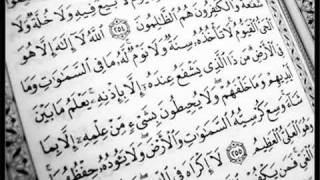 لَّا بَيْعٌ فِيهِ وَلَا خُلَّةٌ وَلَا
شَفَٰعَةٌ وَٱلْكَٰفِرُونَ هُمُ ٱلظَّٰلِمُونَ ٢٥٤ ٱللَّهُ لَآ إِلَٰهَ إِلَّا هُوَ
ٱلْحَىُّ ٱلْقَيُّومُ لَا تَأْخُذُهُۥ سِنَةٌ وَلَا نَوْمٌ لَّهُۥ مَا فِى ٱلسَّمَٰوَٰتِ وَمَا
فِى ٱلْأَرْضِ مَن ذَا ٱلَّذِى يَشْفَعُ عِندَهُۥٓ إِلَّا بِإِذْنِهِۦ يَعْلَمُ مَا بَيْنَ
أَيْدِيهِمْ وَمَا خَلْفَهُمْ وَلَا يُحِيطُونَ بِشَىْءٍ مِّنْ عِلْمِهِۦٓ إِلَّا بِمَا
شَآءَ وَسِعَ كُرْسِيُّهُ ٱلسَّمَٰوَٰتِ وَٱلْأَرْضَ وَلَا يَـُٔودُهُۥ حِفْظُهُمَا
وَهُوَ ٱلْعَلِىُّ ٱلْعَظِيمُ ٢٥٥ لَآ إِكْرَاهَ فِى
ٱلْغَىِّ فَمَن يَكْفُرْ